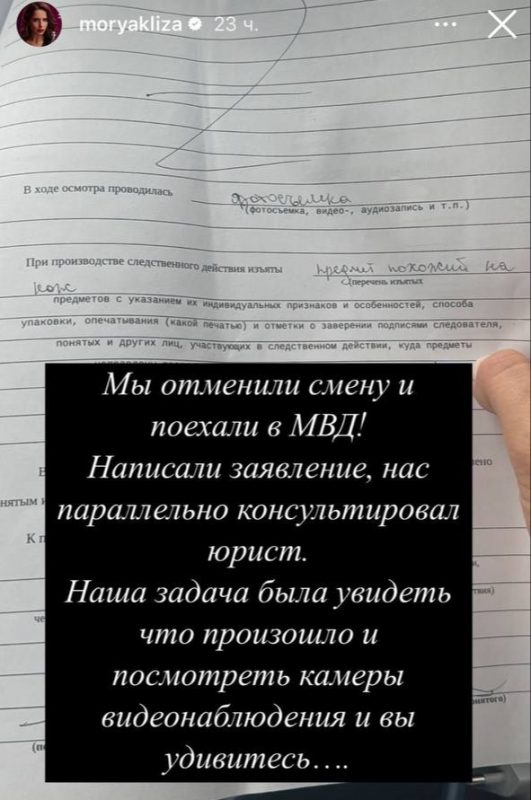 moryakliza 23 ч.
В ходе осмотра проводилась фотосъемка
(фотосъемка, видео-, аудиозапись и т.п.)
При производстве следственного действия изъяты предмет похожий на
(перечень изъятых
нож
предметов с указанием их индивидуальных признаков и особенностей, способа
упаковки, опечатывания (какой печатью) и отметки о заверении подписями следователя,
понятых и других лиц, участвующих в следственном действии, куда предметы
Мы отменили смену и
поехали в МВД!
Написали заявление, нас
параллельно консультировал
юрист.
Наша задача была увидеть
что произошло и
посмотреть камеры
видеонаблюдения и вы
удивитесь….